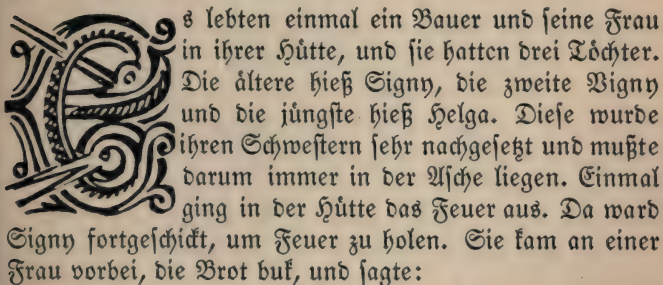 Es lebten einmal ein Bauer und seine Frau
in ihrer Hütte, und sie hatten drei Töchter.
Die ältere hieß Signy, die zweite Vigny
und die jüngste hieß Helga. Diese wurde
ihren Schwestern sehr nachgesetzt und mußte
darum immer in der Asche liegen. Einmal
ging in der Hütte das Feuer aus. Da ward
Signy fortgeschickt, um Feuer zu holen. Sie kam an einer
Frau vorbei, die Brot buk, und sagte: